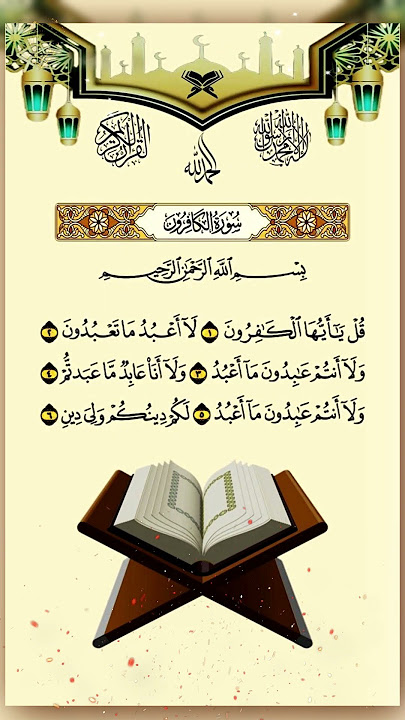 القرآن الكريم
الحمد لله
لا إله إلا الله محمد رسول الله
سُورَةُ الكَافِرُونَ
بِسْمِ اللَّهِ الرَّحْمَٰنِ الرَّحِيمِ
قُلْ يَٰٓأَيُّهَا ٱلْكَٰفِرُونَ ١ لَآ أَعْبُدُ مَا تَعْبُدُونَ ٢
وَلَآ أَنتُمْ عَٰبِدُونَ مَآ أَعْبُدُ ٣ وَلَآ أَنَا۠ عَابِدٌ مَّا عَبَدتُّمْ ٤
وَلَآ أَنتُمْ عَٰبِدُونَ مَآ أَعْبُدُ ٥ لَكُمْ دِينُكُمْ وَلِىَ دِينِ ٦